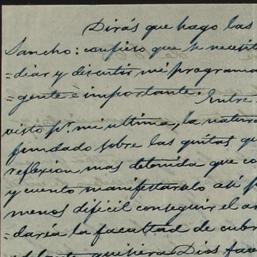 Dirás que hago las
Sancho: confieso que se necesit
=diar y discutir mi programa
=gente è importante. Entre
visto pr. mi ultima, la natura
fundado sobre las quitas qu
reflexion mas detenida que co
y cuento manifestarlo asi p
menos dificil conseguir el ar
=daría la facultad de cubr
quisiera Dios fav